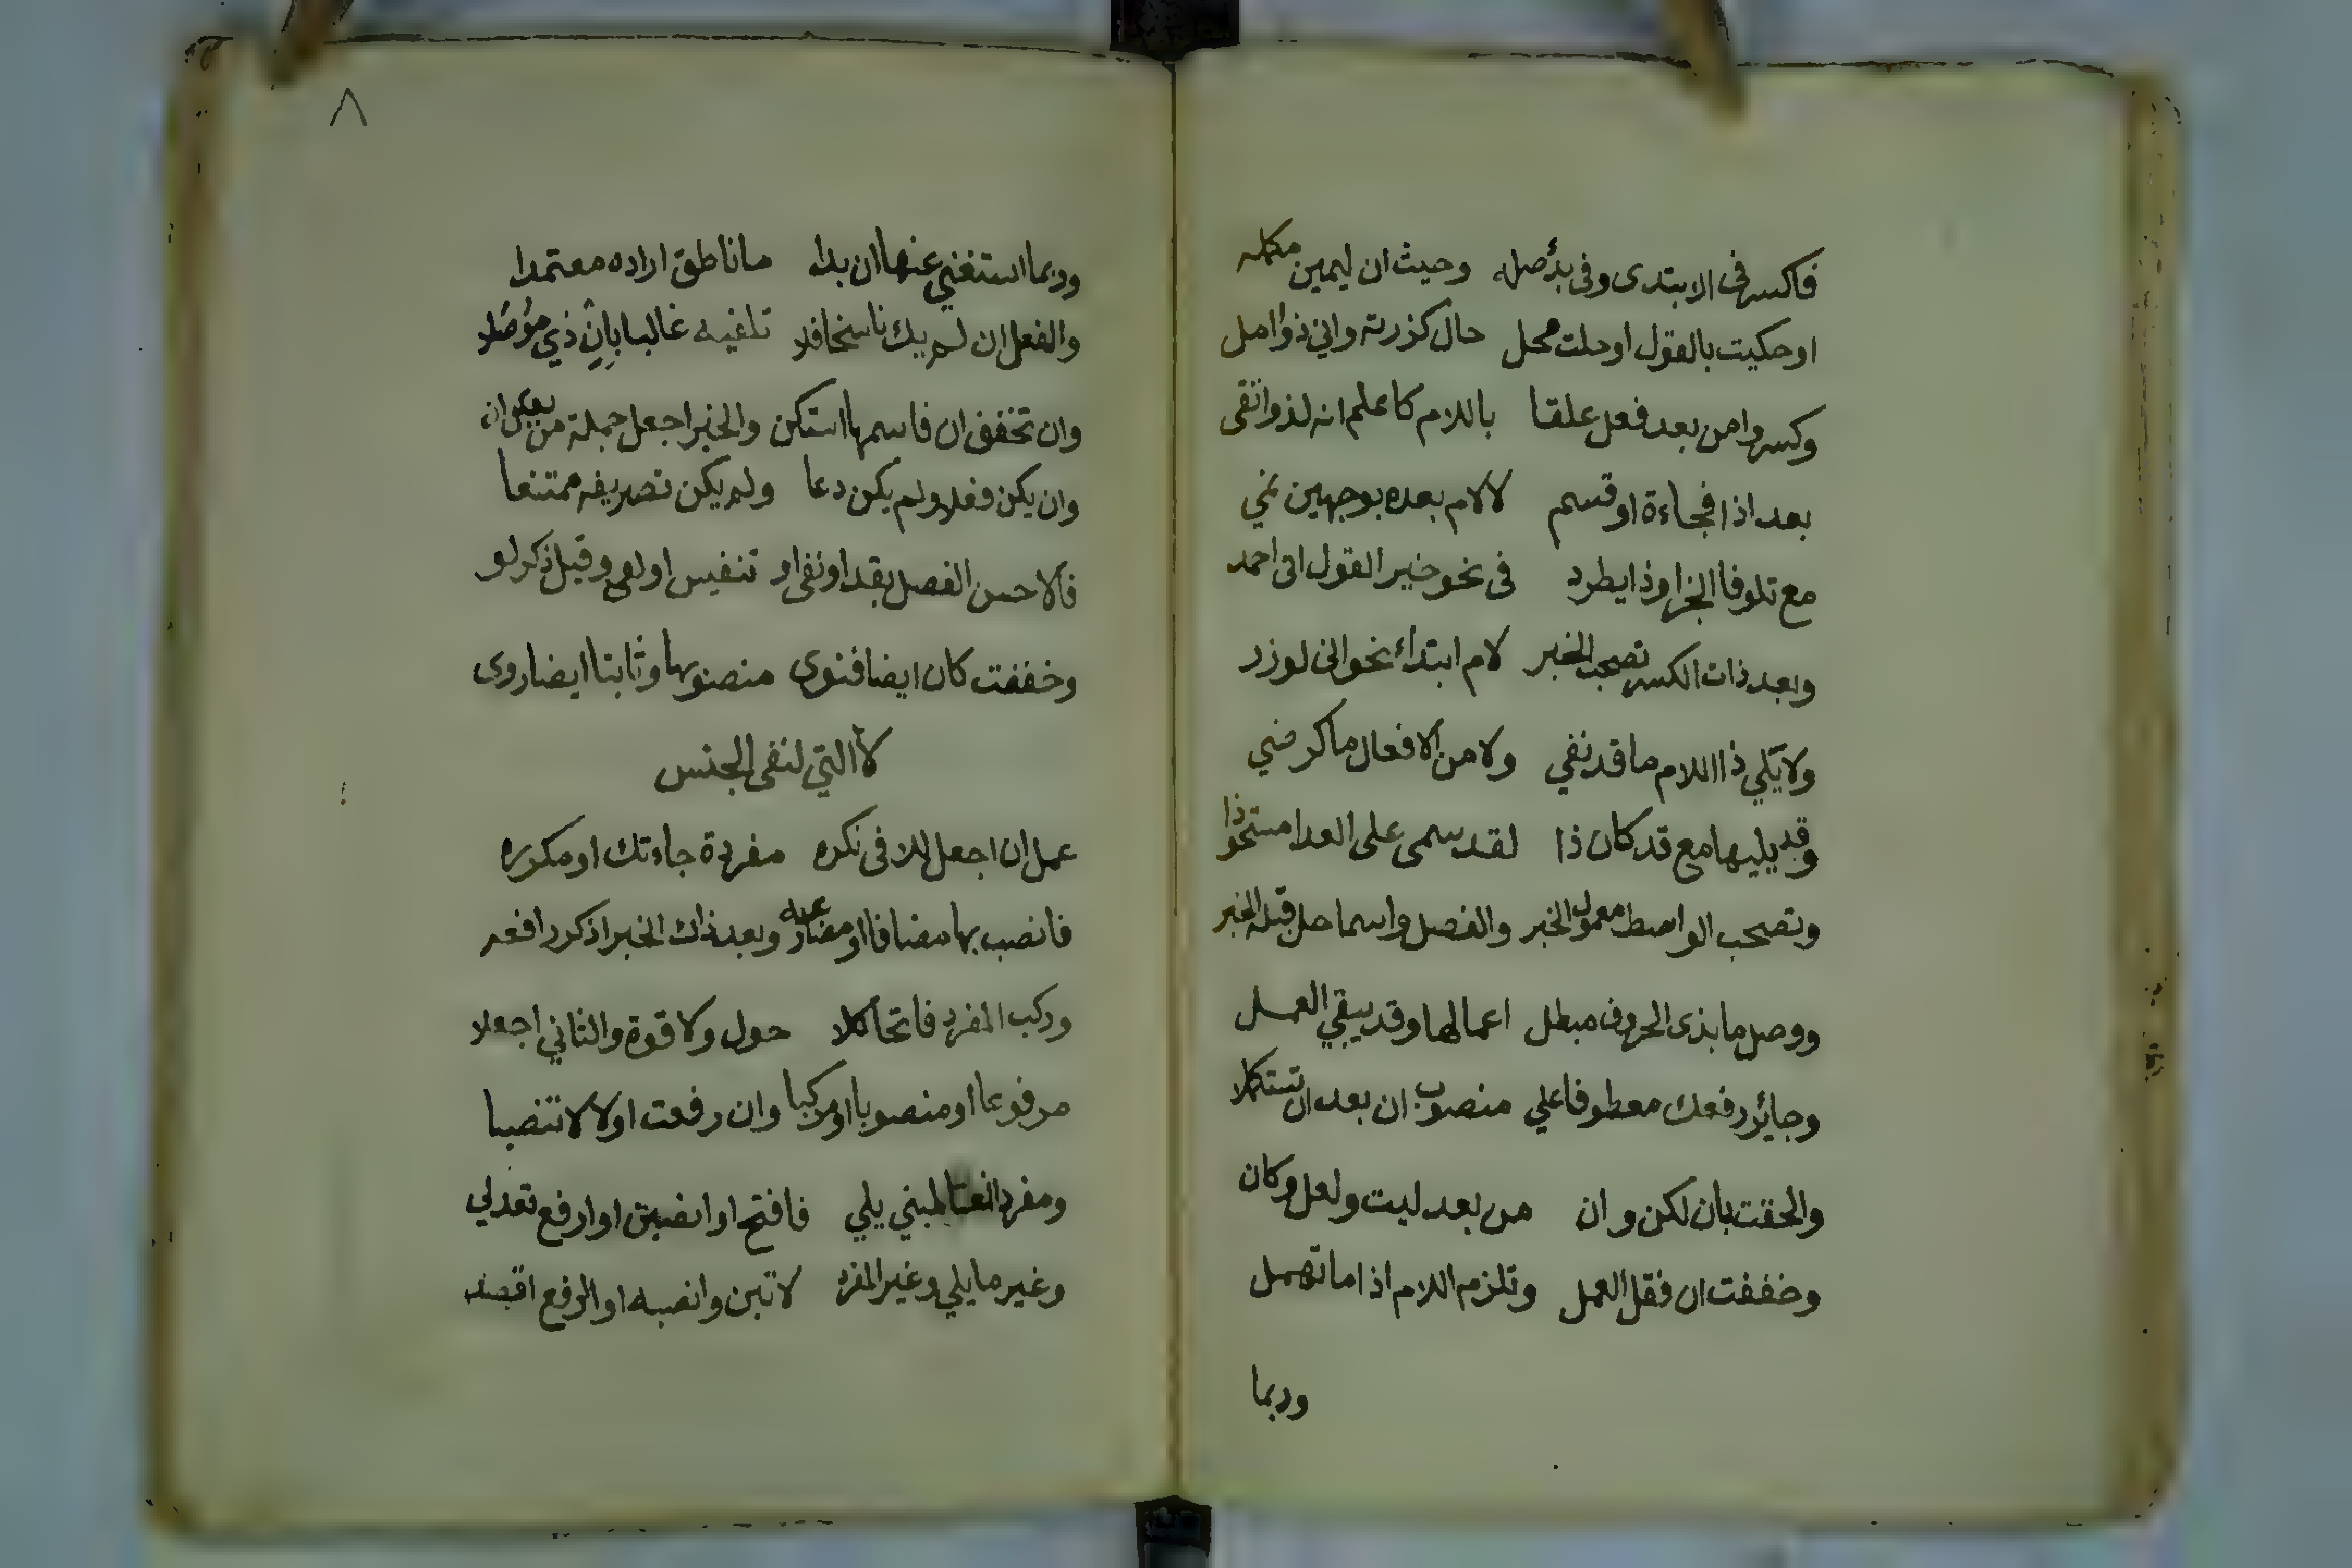 فاكسر فى الابتدى وفى بدأ صله وحيث ان ليمين مكمله
او حكيت بالقول او حلت محل حال كزرته واني ذو امل
وكسروا من بعد فعل علقا باللام كاعلم انه لذو اتقى
بعد اذا فجاءة او قسم لا لام بعده بوجهين نمي
مع تلو فا الجزا وذا يطرد فى نحو خير القول انى احمد
وبعد ذات الكسر تصحب الخبر لام ابتداء نحو انى لوزر
ولا يلي ذا اللام ما قد نفي ولا من الافعال ما كرضي
وقد يليها مع قد كان ذا لقد سمى على العدا مستحوذا
وتصحب الواسط معمول الخبر والفصل واسما حل قبله الخبر
ووصل ما بذى الحروف مبطل اعمالها وقد يبقي العمل
وجائز رفعك معطوفا علي منصوب ان بعد ان تستكملا
والحقت بأن لكن وان من بعد ليت ولعل وكان
وخففت ان فقل العمل وتلزم اللام اذا ما تهمل
وربما
٨
وربما استغني عنها ان بدا ما ناطق اراده معتمدا
والفعل ان لم يك ناسخا فلا تلفيه غالبا بان ذي موصلا
وان تخفف ان فاسمها استكن والخبر اجعل جملة من بعد ان
وان يكن فعلا ولم يكن دعا ولم يكن تصريفه ممتنعا
فالاحسن الفصل بقد او نفى او تنفيس او لو وقيل ذكر لو
وخففت كان ايضا فنوى منصوبها وثابتا ايضا روى
لا التي لنفى الجنس
عمل ان اجعل للا فى نكره مفردة جاءتك او مكرره
فانصب بها مضافا او مضارعه وبعد ذاك الخبر اذكر رافعه
وركب المفرد فاتحا كلا حول ولا قوة والثاني اجعلا
مرفوعا او منصوبا او مركبا وان رفعت اولا لا تنصبا
ومفردا نعتا لمبني يلي فافتح او انصبن او ارفع تعدلي
وغير ما يلي وغير المفرد لا تبن وانصبه او الرفع اقصد